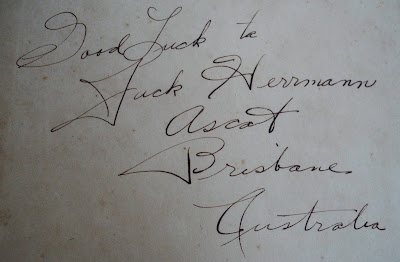 Good Luck to
Puck Herrmann
Ascot
Brisbane
Australia